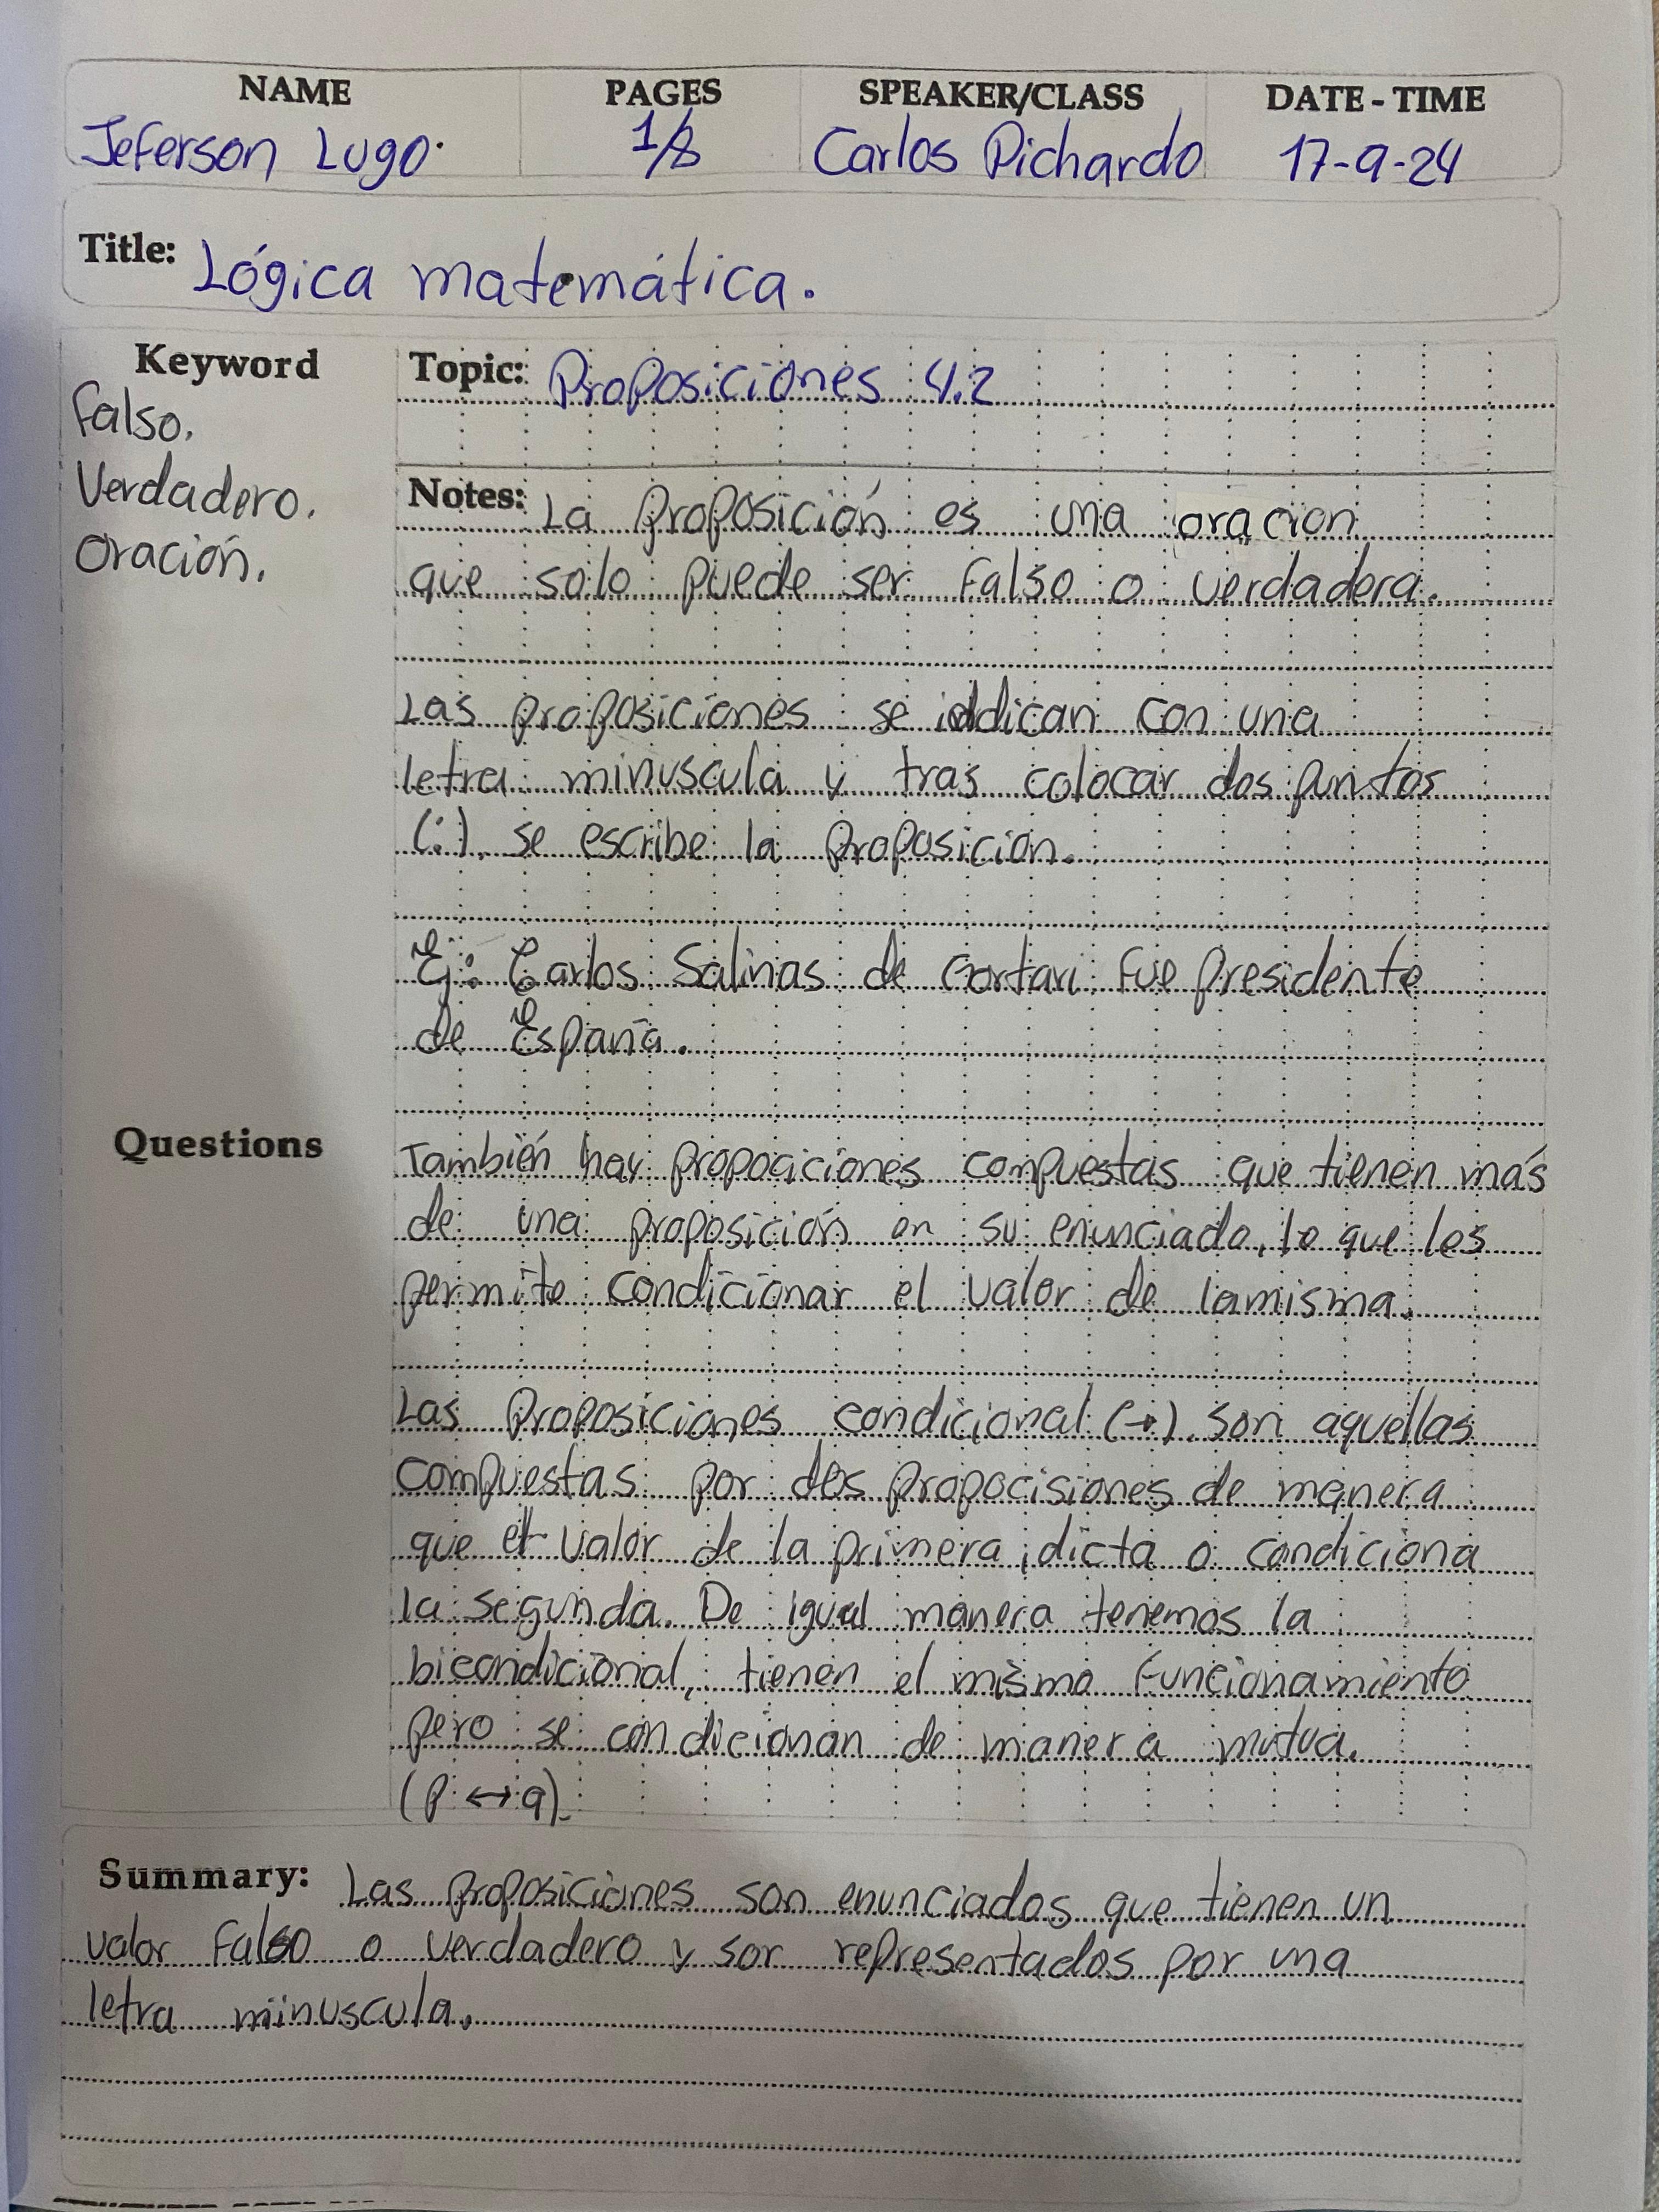 NAME PAGES SPEAKER/CLASS DATE - TIME
Jeferson Lugo. 1/8 Carlos Pichardo 17-9-24
Title: Lógica matemática.
Keyword
Falso.
Verdadero.
Oración.
Topic: Proposiciones 4.2
Notes: La proposición es una oracion
que solo puede ser Falso o verdadera.
Las proposiciones se inddican con una
letra minuscula y tras colocar dos puntos
(:), se escribe la proposición.
Ej: Carlos Salinas de Gortari Fue presidente
de España.
Questions
También hay propociciones compuestas que tienen más
de una proposición en su enunciado, lo que les
permite condicionar el valor de lamisma.
Las Proposiciones condicional (→), son aquellas
compuestas por dos propocisiones de manera
que el valor de la primera, dicta o condiciona
la segunda. De igual manera tenemos la
bicondicional, tienen el mismo Funcionamiento
pero se condicionan de manera mutua.
(p ↔ q).
Summary: Las proposiciones son enunciados que tienen un
valor Falso o verdadero y sor representados por una
letra minuscula.